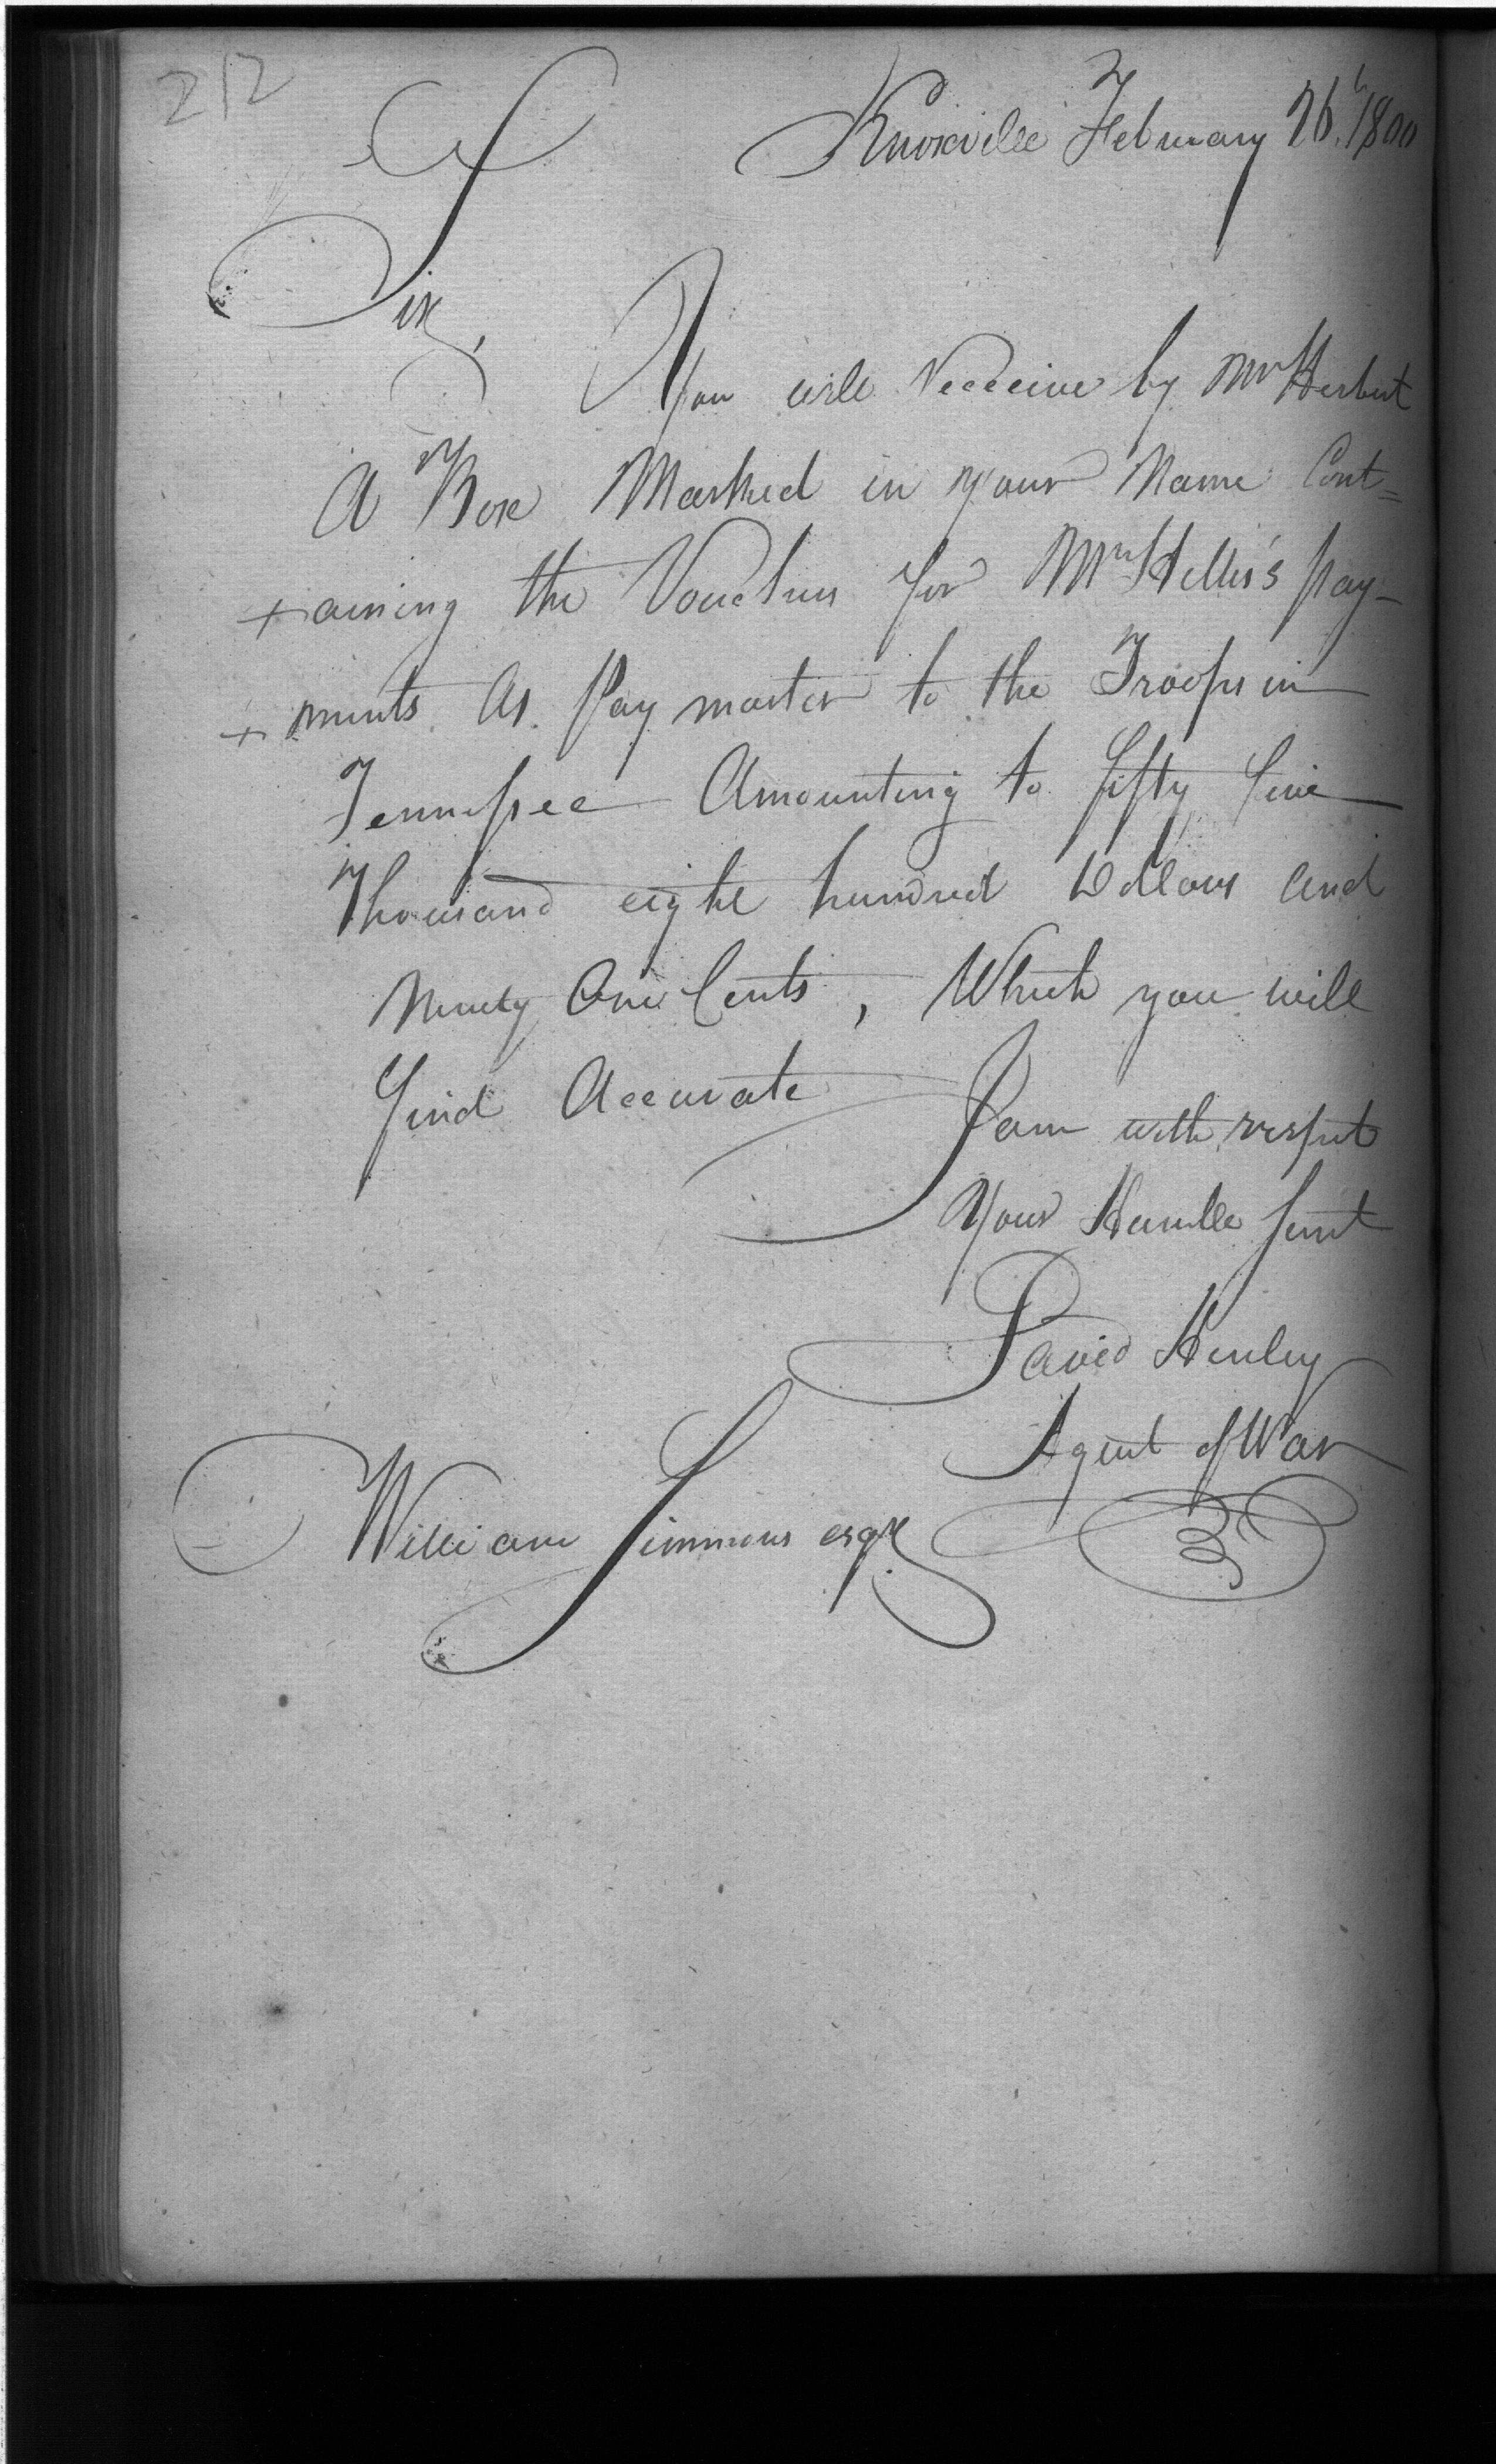 212
Knoxville February 26th 1800
Sir,
You will Receeive by Mr Herbert
A Box Marked in your Name Cont=
+aining the Vouchers for Mr Hillis's pay-
+ments As Pay master to the Troops in
Tennessee Amounting to fifty five
Thousand eight hundred Dollars and
Ninety One Cents, Which you will
find Accurate
I am with respect
Your Humble Servt
David Henley
Agent of War
William Simmons esqr